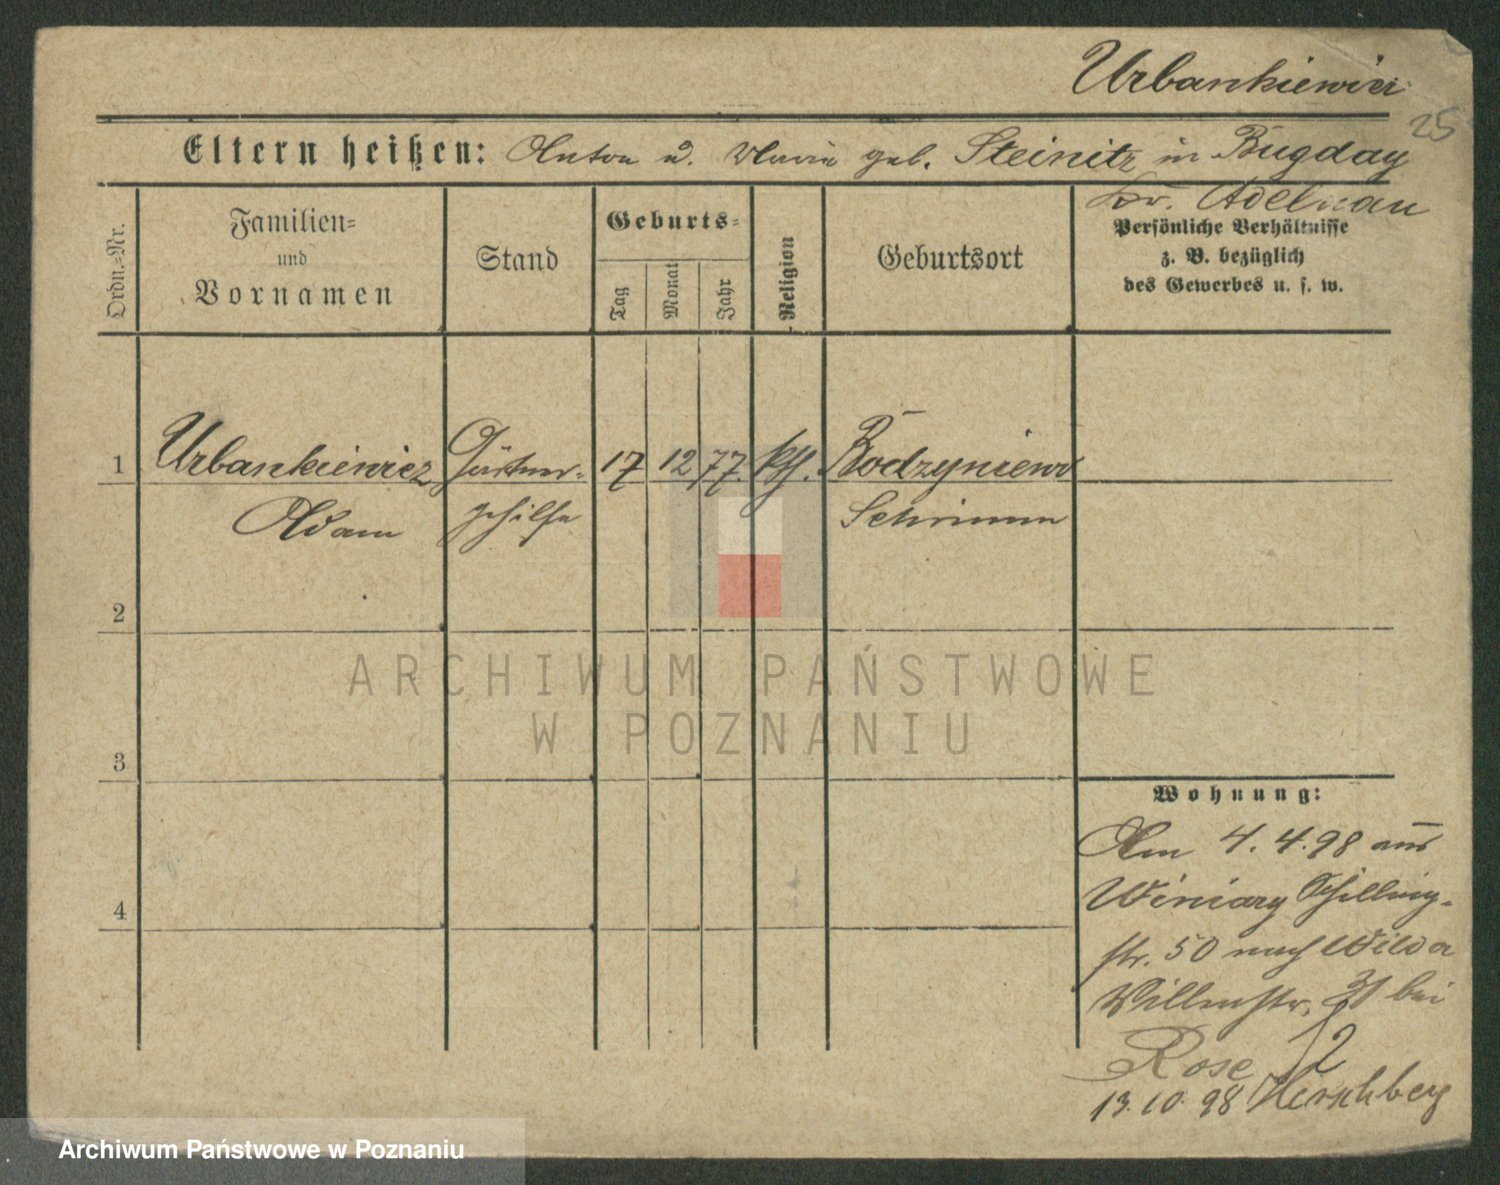 Urbankiewicz
25
Eltern heißen: Anton u. Marie geb. Steinitz in Bugday
Kr. Adelnau
Ordn.-Nr.
Familien-
und
Vornamen
Stand
Geburts-
Tag
Monat
Jahr
Religion
Geburtsort
Persönliche Verhältnisse
z. B. bezüglich
des Gewerbes u. s. w.
1 Urbankiewicz Gärtner- 17 12 77. kth. Bodzyniewo
Adam gehilfe Schrimm
2
ARCHIWUM PAŃSTWOWE
W POZNANIU
3
Wohnung:
Am 4. 4. 98 aus
Winiary Schilling-
4
str. 50 nach Wilda
31 bei
Rose
13. 10. 98 Herschberg
Archiwum Państwowe w Poznaniu